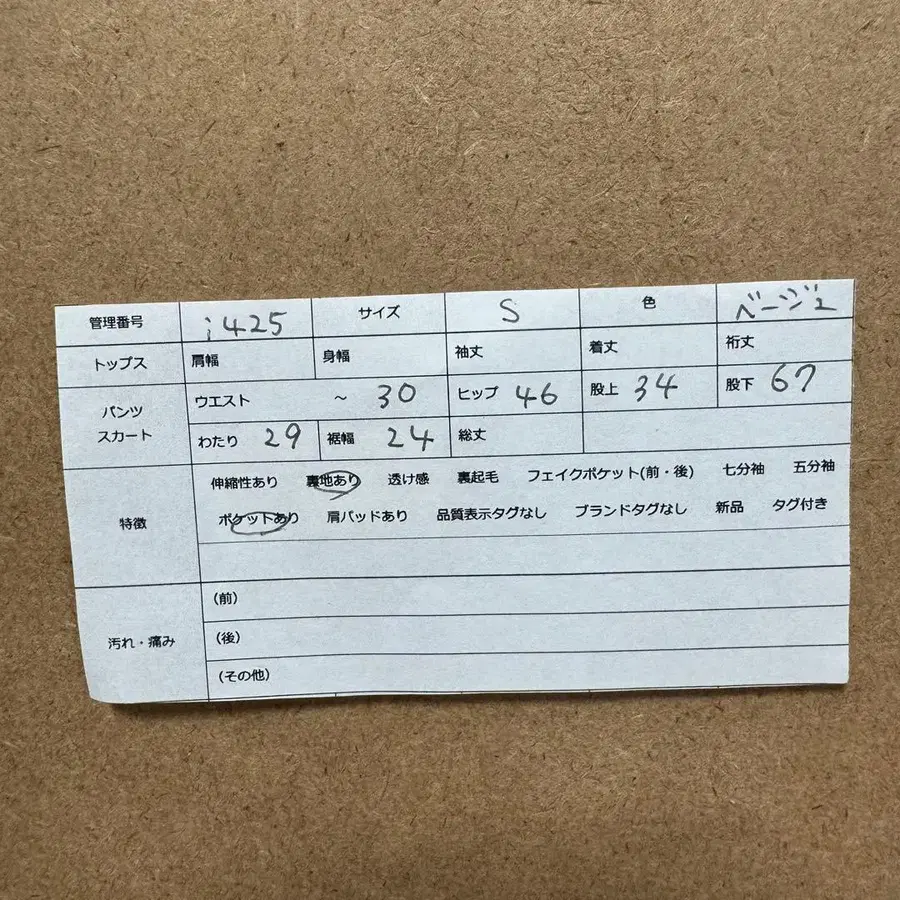 管理番号 i425 サイズ S 色 ベージュ
トップス 肩幅 身幅 袖丈 着丈 裄丈
パンツ スカート ウエスト ～ 30 ヒップ 46 股上 34 股下 67
わたり 29 裾幅 24 総丈
特徴 伸縮性あり 裏地あり 透け感 裏起毛 フェイクポケット(前・後) 七分袖 五分袖
ポケットあり 肩パッドあり 品質表示タグなし ブランドタグなし 新品 タグ付き
汚れ・痛み (前)
(後)
(その他)